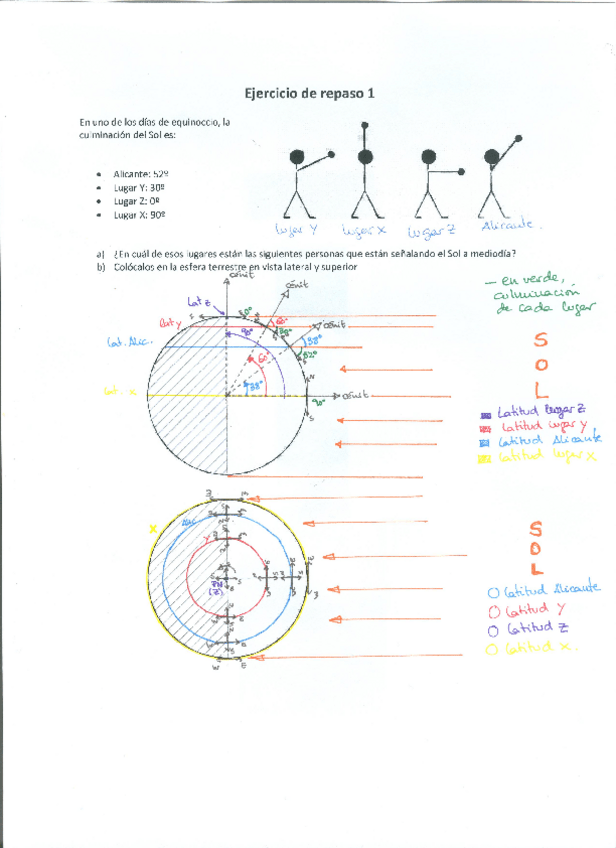 Ejercicio de repaso 1
En uno de los días de equinoccio, la
culminación del Sol es:
• Alicante: 52º
• Lugar Y: 30º
• Lugar Z: 0º
• Lugar X: 90º
Lugar Y Lugar X Lugar Z Alicante.
a) ¿En cuál de esos lugares están las siguientes personas que están señalando el Sol a mediodía?
b) Colócalos en la esfera terrestre en vista lateral y superior
cénit
cénit
Lat Z
Lat Y
Lat. Alic.
Lat. X
90°
60°
38°
cénit
38°
52°
N
cénit
90°
S
— en verde,
culminación
de cada lugar
S
O
L
Latitud lugar Z
Latitud lugar Y
Latitud Alicante
Latitud lugar X
X
Alic
Y
PN
(Z)
W E
S
O
L
Latitud Alicante
Latitud Y
Latitud Z
Latitud X.